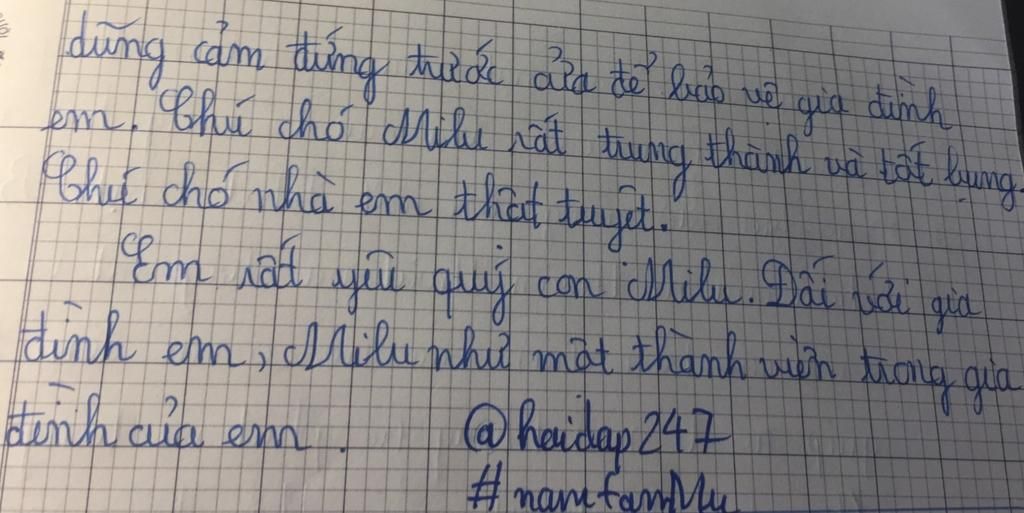 dũng cảm đứng trước cửa để bảo vệ gia đình
em. Chú chó Milu rất trung thành và tốt bụng.
Chú chó nhà em thật tuyệt.
Em rất yêu quý con Milu. Đối với gia
đình em, Milu như một thành viên trong gia
đình của em.
@hoidap247
#namfam